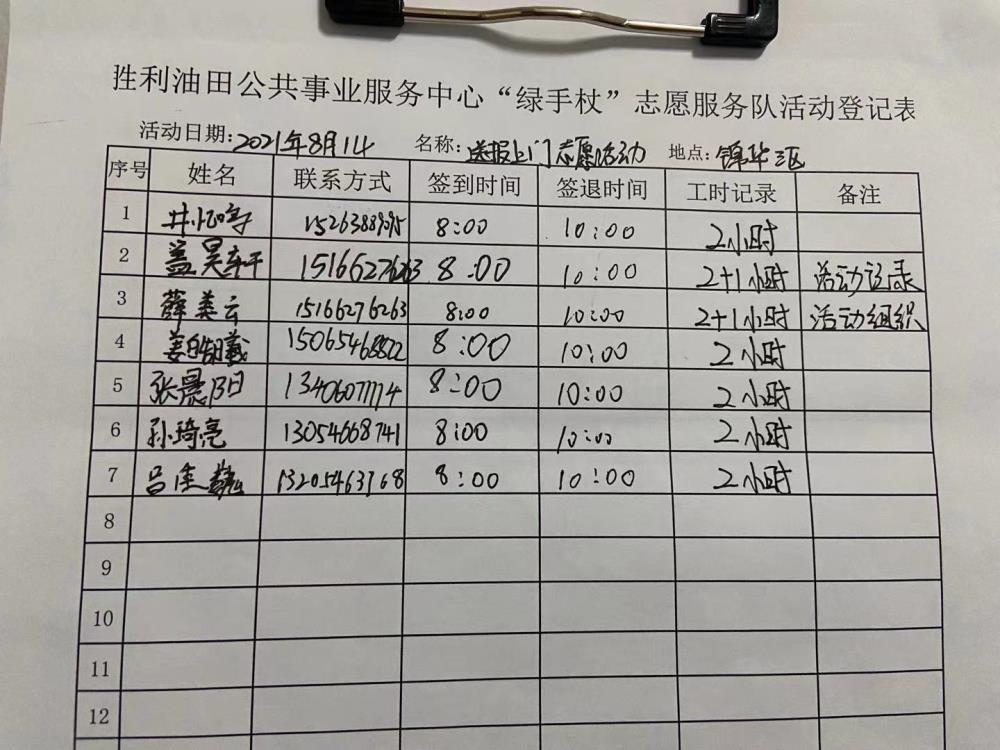 胜利油田公共事业服务中心“绿手杖”志愿服务队活动登记表
活动日期:2021年8月14 名称:送报上门志愿活动 地点:锦华三区
序号 姓名 联系方式 签到时间 签退时间 工时记录 备注
1 8:00 10:00 2小时
2 15166276263 8:00 10:00 2+1小时 活动记录
3 薛美云 15166276263 8:00 10:00 2+1小时 活动组织
4 15065468822 8:00 10:00 2小时
5 张晨阳 8:00 10:00 2小时
6 孙琦亮 13054668741 8:00 10:00 2小时
7 13205463768 8:00 10:00 2小时
8
9
10
11
12